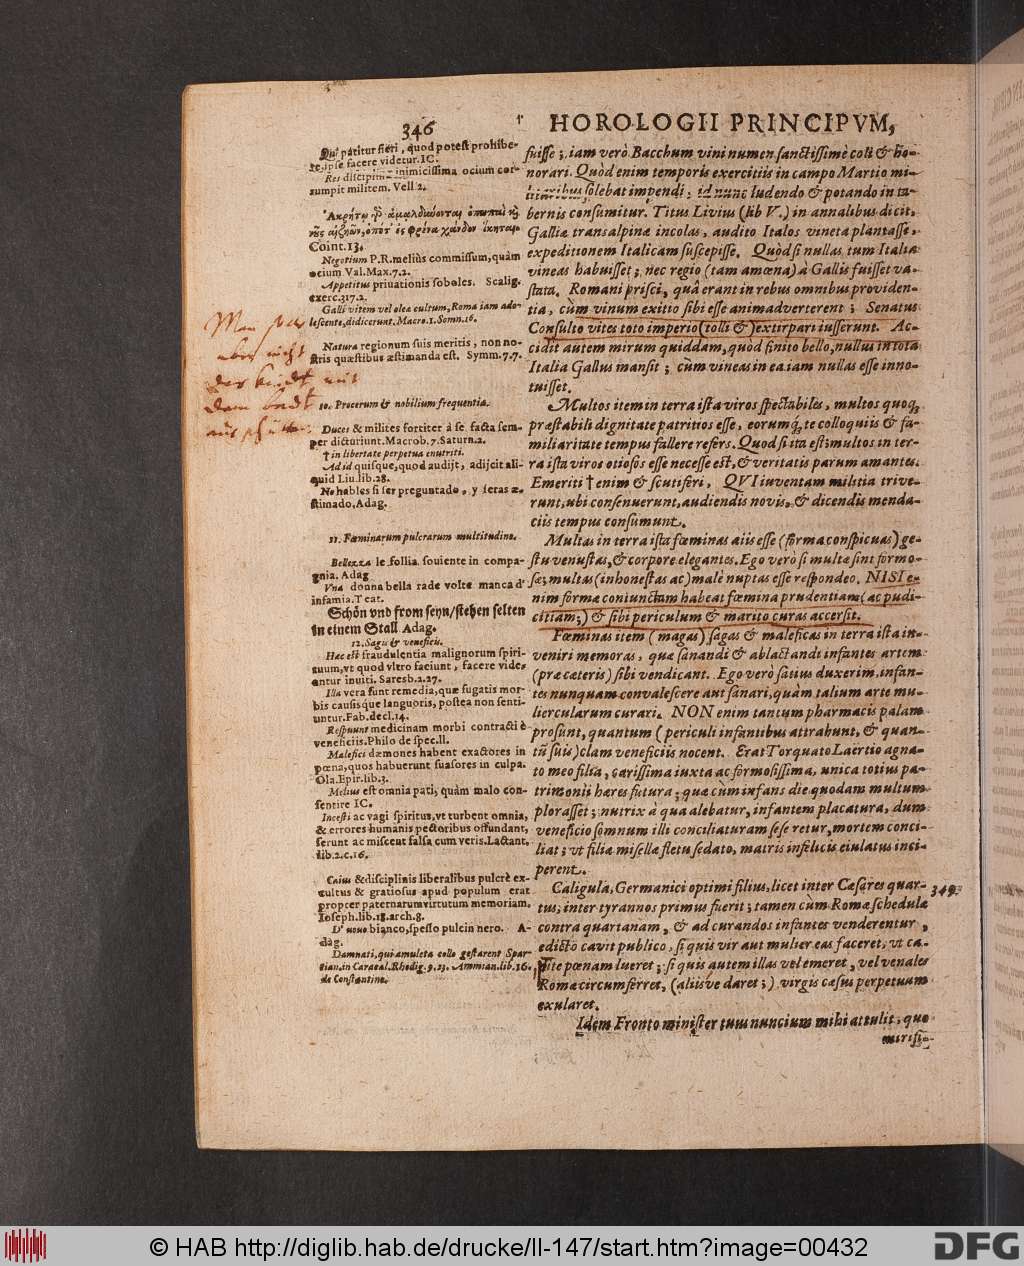 346
HOROLOGII PRINCIPVM,
Qui patitur fieri, quod potest prohibe-
re ipse facere videtur. IC.
inimicissima ocium cor-
rumpit militem. Vell 2.
Coint. 13.
Negotium P.R. meliùs commissum, quàm
ocium Val. Max. 7.2.
Appetitus priuationis soboles. Scalig.
exerc. 317.2.
Galli vitem vel olea cultum, Roma iam ado-
lescente, didicerunt. Macro. 1. Somn. 16.
Natura regionum suis meritis, non no-
stris quæstibus æstimanda est. Symm. 7.7.
10. Procerum & nobilium frequentia.
Duces & milites fortiter à se facta sem-
per dicturiunt. Macrob. 7. Saturn. 2.
† in libertate perpetua enutriti.
Ad id quisque, quod audijt, adijcit ali-
quid Liu. lib. 28.
No hables si ser preguntado, y seras æ-
stimado, Adag.
11. Fœminarum pulcrarum multitudine.
Bellezza le follia souiente in compa-
gnia. Adag
Vna donna bella rade volte manca d'
infamia. Teat.
Schön vnd from seyn/stehen selten
in einem Stall Adag.
12. Sagis & veneficis.
Hæc est fraudulentia malignorum spiri-
tuum, vt quod vltro faciunt, facere vide-
antur inuiti. Saresb. 2.27.
Illa vera sunt remedia, quæ fugatis mor-
bis causisque languoris, postea non senti-
untur. Fab. decl. 14.
Respuunt medicinam morbi contracti è
veneficiis. Philo de spec. ll.
Malefici dæmones habent exactores in
pœna, quos habuerunt suasores in culpa.
Ola. Epir. lib. 3.
Melius est omnia pati, quàm malo con-
sentire IC.
Incesti ac vagi spiritus, vt turbent omnia,
& errores humanis pectoribus offundant,
serunt ac miscent falsa cum veris. Lactant.
lib. 2. c. 16.
Caius & disciplinis liberalibus pulcrè ex-
cultus & gratiosus apud populum erat
propter paternarum virtutum memoriam.
Ioseph. lib. 18. arch. 8.
D' uouo bianco, spesso pulcin nero. A-
dag.
Damnati, qui amuleta collo gestarent Spar-
tian. in Caracal. Rhodig. 9.23. Ammian. lib. 16.
de Constantino.
Man
nicht
mit
dem badt
fuisse; iam verò Bacchum vini numen sanctissimè coli & ho-
norari. Quòd enim temporis exercitiis in campo Martio mi-
litaribus solebat impendi; id nunc ludendo & potando in ta-
bernis consumitur. Titus Livius (lib V.) in annalibus dicit,
Galliæ transalpinæ incolas, audito Italos vineta plantasse,
expeditionem Italicam suscepisse. Quòd si nullas tum Italia
vineas habuisset; nec regio (tam amœna) à Gallis fuisset va-
stata. Romani prisci, quâ erant in rebus omnibus providen-
tia, cùm vinum exitio sibi esse animadverterent; Senatus
Consulto vites toto imperio (tolli &) extirpari iusserunt. Ac-
cidit autem mirum quiddam, quòd finito bello, nullus in tota
Italia Gallus mansit; cùm vineas in ea iam nullas esse inno-
tuisset.
Multos item in terra ista viros spectabiles, multos quoq;
præstabili dignitate patritios esse, eorumq; te colloquiis & fa-
miliaritate tempus fallere refers. Quod si ita est; multos in ter-
ra ista viros otiosos esse necesse est, & veritatis parum amantes.
Emeriti † enim & scutiferi, QVI iuventam militia trive-
runt, ubi consenuerunt, audiendis novis, & dicendis menda-
ciis tempus consumunt.
Multas in terra ista fœminas aiis esse (forma conspicuas) ge-
stu venustas, & corpore elegantes. Ego verò si multæ sint formo-
sæ; multas (inhonestas ac) malè nuptas esse respondeo. NISI e-
nim formæ coniunctam habeat fœmina prudentiam (ac pudi-
citiam;) & sibi periculum & marito curas accersit.
Fœminas item (magas) sagas & maleficas in terra ista in-
veniri memoras, quæ sanandi & ablactandi infantes artem
(præ cæteris) sibi vendicant. Ego verò satius duxerim, infan-
tes nunquam convalescere aut sanari, quàm talium arte mu-
liercularum curari. NON enim tantum pharmacis palam
prosunt, quantum (periculi infantibus attrahunt, & quan-
tũ suis) clam veneficiis nocent. Erat Torquato Laërtio agna-
to meo filia, carissima iuxta ac formosissima, unica totius pa-
trimonii hæres futura; quæ cùm infans die quodam multum
plorasset; nutrix à qua alebatur, infantem placatura, dum
veneficio somnum illi conciliaturam sese retur, mortem conci-
liat; ut filiæ misellæ fletu sedato, matris infelicis eiulatus inci-
perent.
Caligula, Germanici optimi filius, licet inter Cæsares quar-
tus, inter tyrannos primus fuerit; tamen cùm Romæ schedulæ
contra quartanam, & ad curandos infantes venderentur,
edictò cavit publico, si quis vir aut mulier eas faceret, ut ca-
pite pœnam lueret; si quis autem illas vel emeret, vel venales
Romæ circumferret, (aliisve daret;) virgis cæsus perpetuum
exularet.
Idem Fronto minister tuus nuncium mihi attulit, quo
mirifi-
349
© HAB http://diglib.hab.de/drucke/li-147/start.htm?image=00432
DFG